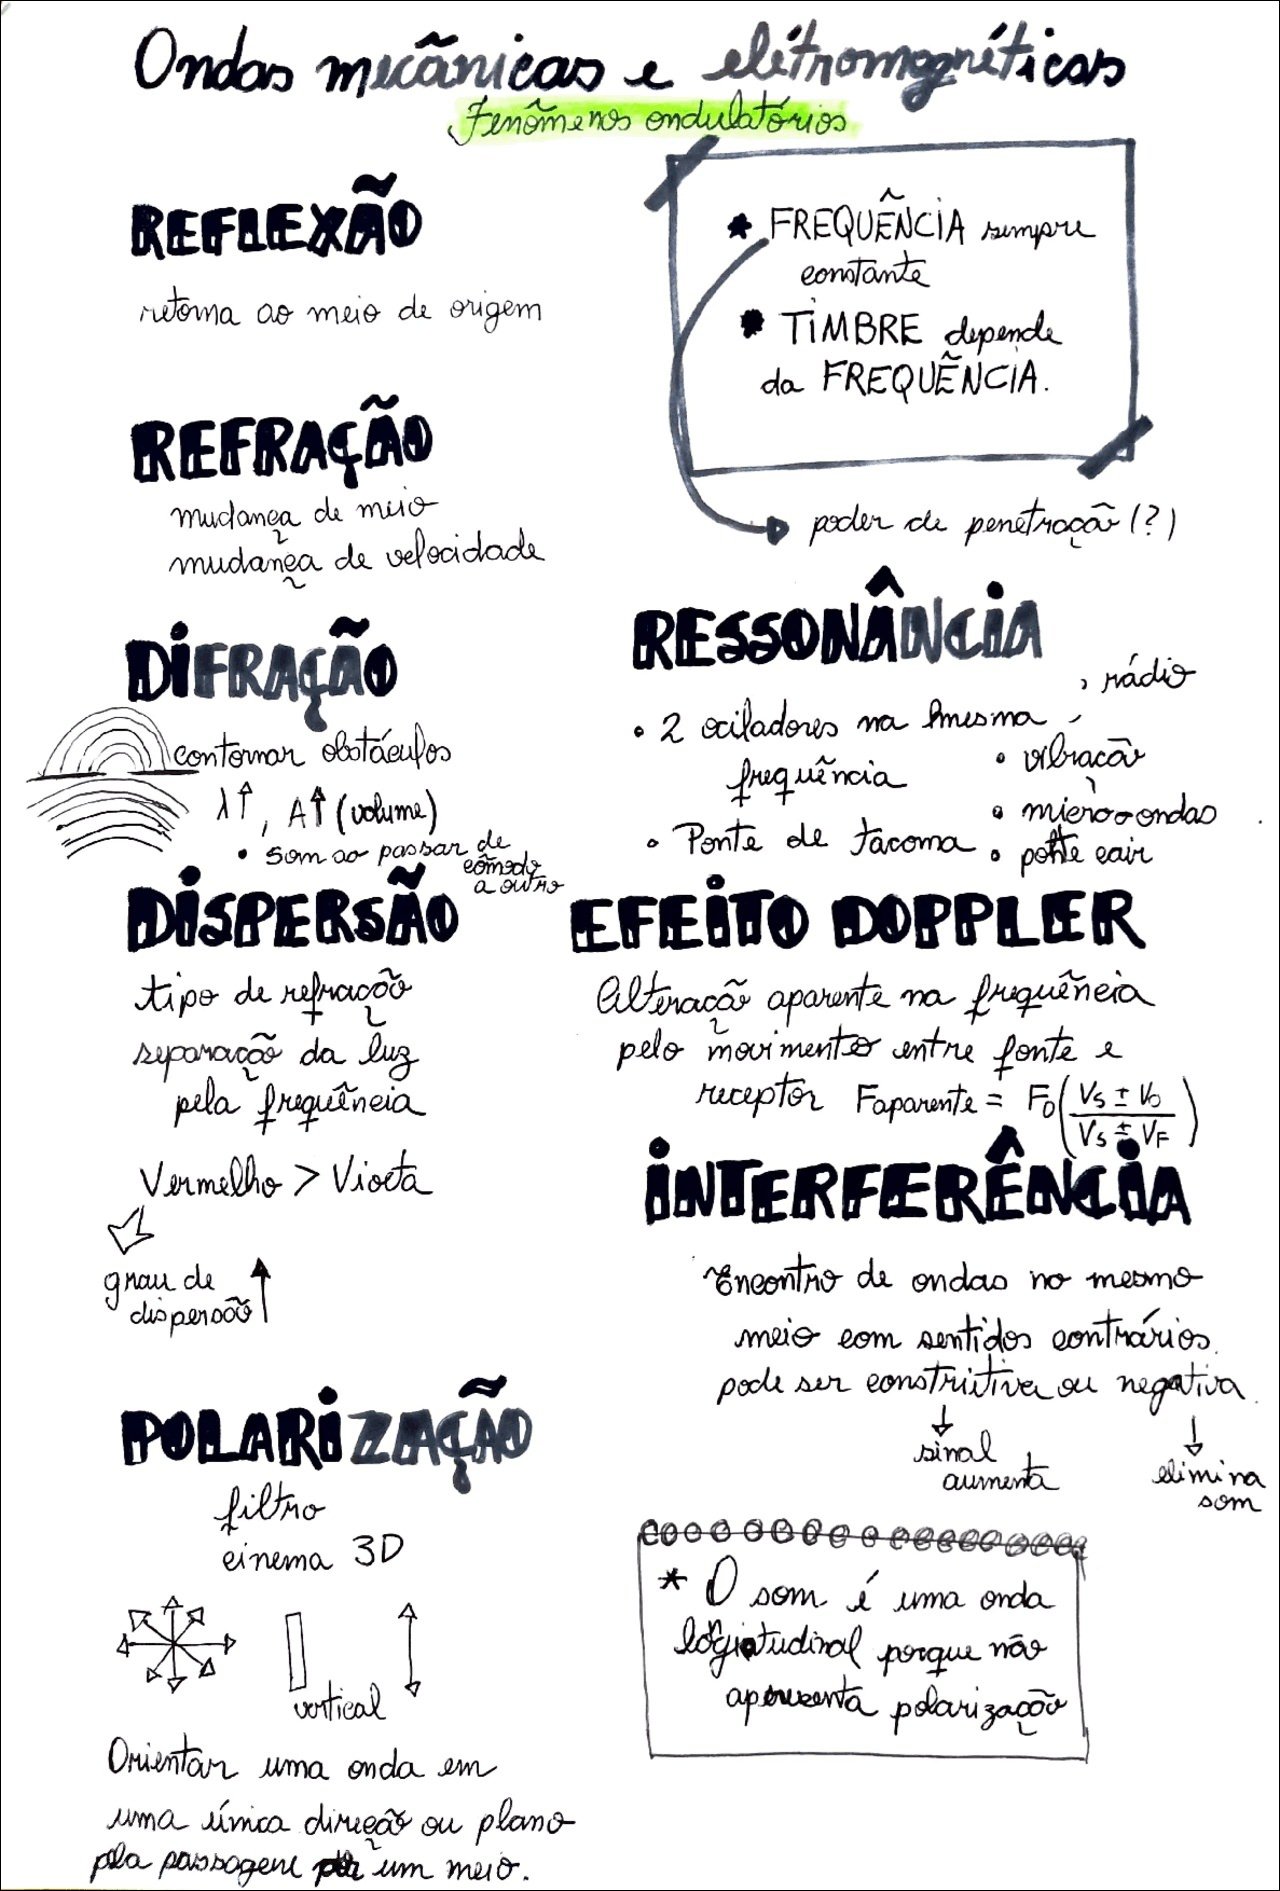 Ondas mecânicas e eletromagnéticas
Fenômenos ondulatórios
REFLEXÃO
retorna ao meio de origem
REFRAÇÃO
mudança de meio
mudança de velocidade
DIFRAÇÃO
contornar obstáculos
λ↑, A↑ (volume)
• som ao passar de
cômodo
a outro
DISPERSÃO
tipo de refração
separação da luz
pela frequência
Vermelho > Violeta
grau de
dispersão ↑
POLARIZAÇÃO
filtro
cinema 3D
vertical
Orientar uma onda em
uma única direção ou plano
pla passagem por um meio.
* FREQUÊNCIA sempre
constante
* TIMBRE depende
da FREQUÊNCIA.
poder de penetração (?)
RESSONÂNCIA
• 2 ociladores na mesma
frequência
• Ponte de Tacoma
rádio
• vibração
• micro-ondas
• ponte cair
EFEITO DOPPLER
Alteração aparente na frequência
pelo movimento entre fonte e
receptor Faparente = F0 (Vs ± Vo / Vs ± VF)
INTERFERÊNCIA
Encontro de ondas no mesmo
meio com sentidos contrários.
pode ser construtiva ou negativa.
↓ ↓
sinal
aumenta
elimina
som
* O som é uma onda
longitudinal porque não
apresenta polarização